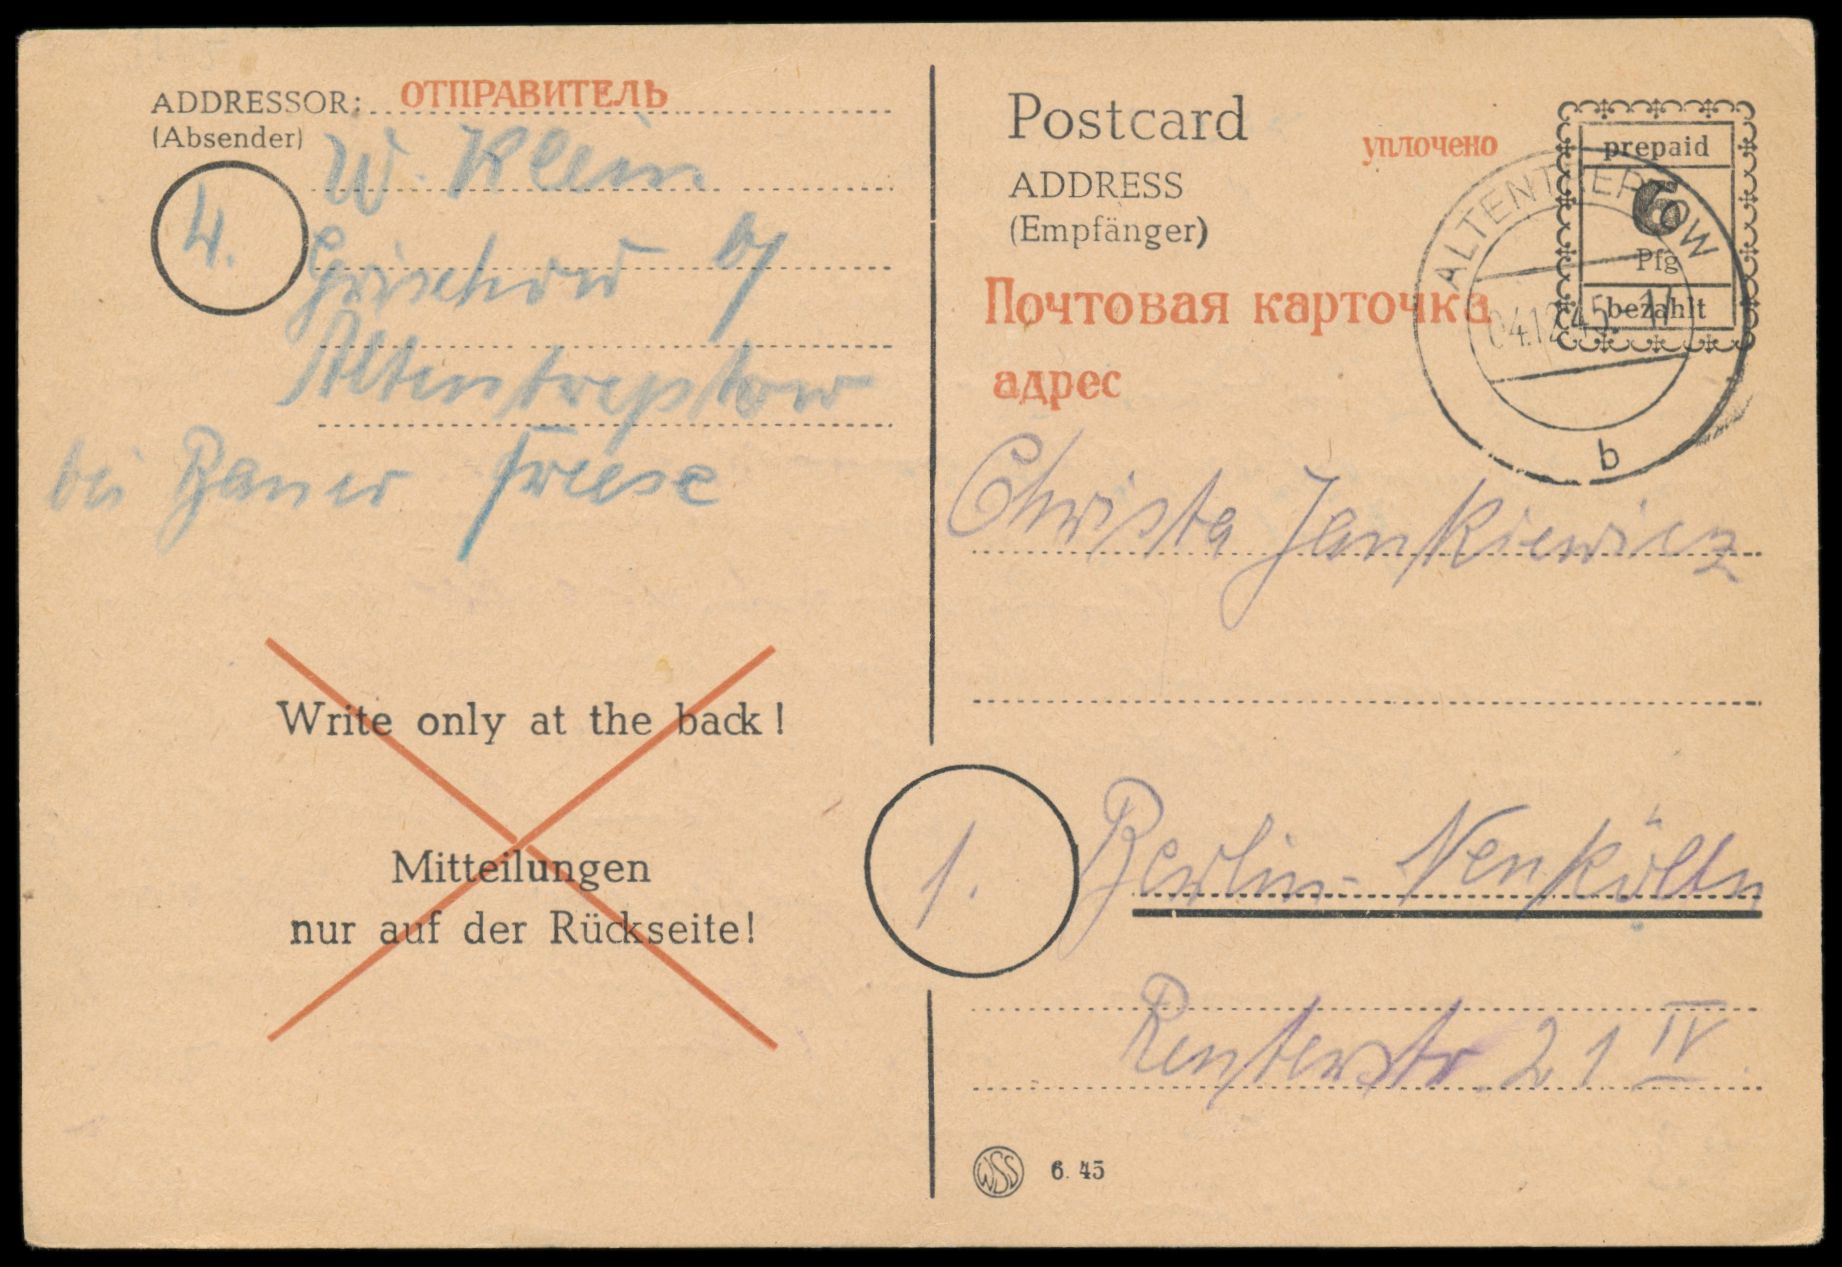 ADDRESSOR: ОТПРАВИТЕЛЬ
(Absender)
4.
W. Klein
Grischow b/
Altentreptow
bei Bauer Friese
Write only at the back!
Mitteilungen
nur auf der Rückseite!
Postcard
уплочено
ADDRESS
(Empfänger)
Почтовая карточка
адрес
prepaid
6
Pfg
bezahlt
ALTENTREPTOW
04.12.45.-17
b
Christa Jankiewicz
1.
Berlin-Neukölln
Reuterstr. 21 IV
WSS 6.45